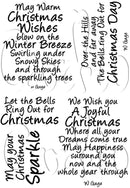 May Warm
Christmas
Wishes
blow on the
Winter Breeze
Swirling under
Snowy Skies
and through
the sparkling trees
Over the Hills
and far away
The Bells ring Out for
Christmas Day
Let the Bells
Ring Out for
Christmas
May your
Christmas
Sparkle
We Wish you
A Joyful
Christmas
Where all your
Dreams come true
May Happiness
surround you
now and the
whole year through